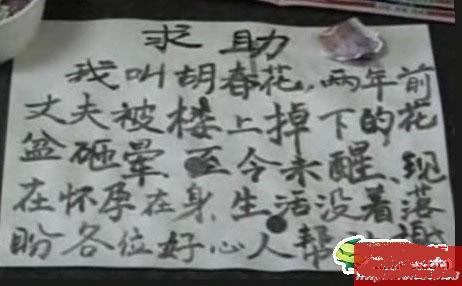 求助
我叫胡春花,两年前
丈夫被楼上掉下的花
盆砸晕、至今未醒、现
在怀孕在身、生活没着落
盼各位好心人帮